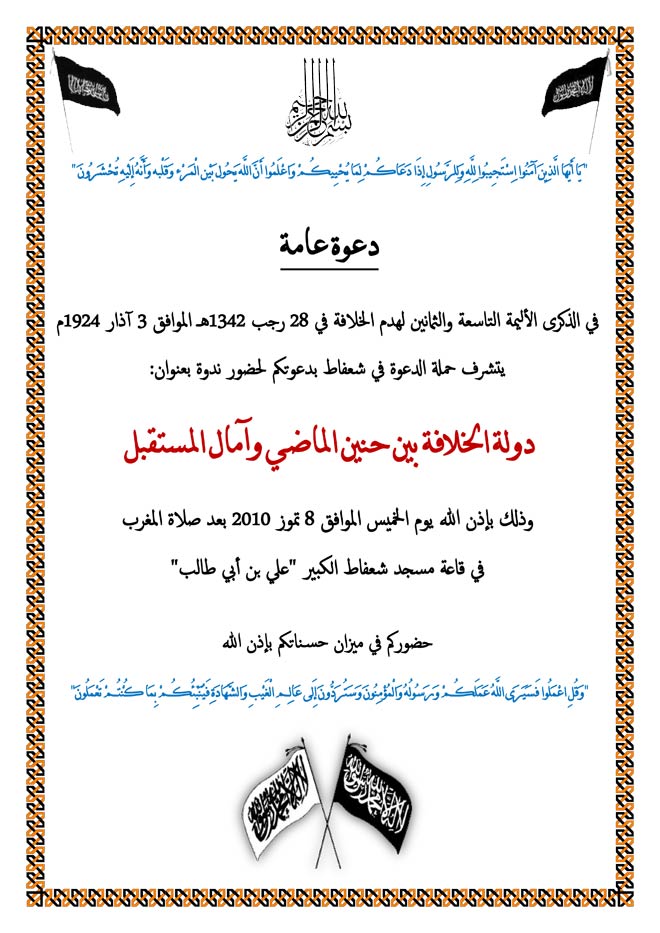 بسم الله الرحمن الرحيم
"يَا أَيُّهَا الَّذِينَ آمَنُوا اسْتَجِيبُوا لِلَّهِ وَلِلرَّسُولِ إِذَا دَعَاكُمْ لِمَا يُحْيِيكُمْ وَاعْلَمُوا أَنَّ اللَّهَ يَحُولُ بَيْنَ الْمَرْءِ وَقَلْبِهِ وَأَنَّهُ إِلَيْهِ تُحْشَرُونَ"
دعوة عامة
في الذكرى الأليمة التاسعة والثمانين لهدم الخلافة في 28 رجب 1342هـ الموافق 3 آذار 1924م
يتشرف حملة الدعوة في شعفاط بدعوتكم لحضور ندوة بعنوان:
دولة الخلافة بين حنين الماضي وآمال المستقبل
وذلك بإذن الله يوم الخميس الموافق 8 تموز 2010 بعد صلاة المغرب
في قاعة مسجد شعفاط الكبير "علي بن أبي طالب"
حضوركم في ميزان حسناتكم بإذن الله
"وَقُلِ اعْمَلُوا فَسَيَرَى اللَّهُ عَمَلَكُمْ وَرَسُولُهُ وَالْمُؤْمِنُونَ وَسَتُرَدُّونَ إِلَى عَالِمِ الْغَيْبِ وَالشَّهَادَةِ فَيُنَبِّئُكُمْ بِمَا كُنْتُمْ تَعْمَلُونَ"
لا إله إلا الله محمد رسول الله
لا إله إلا الله محمد رسول الله